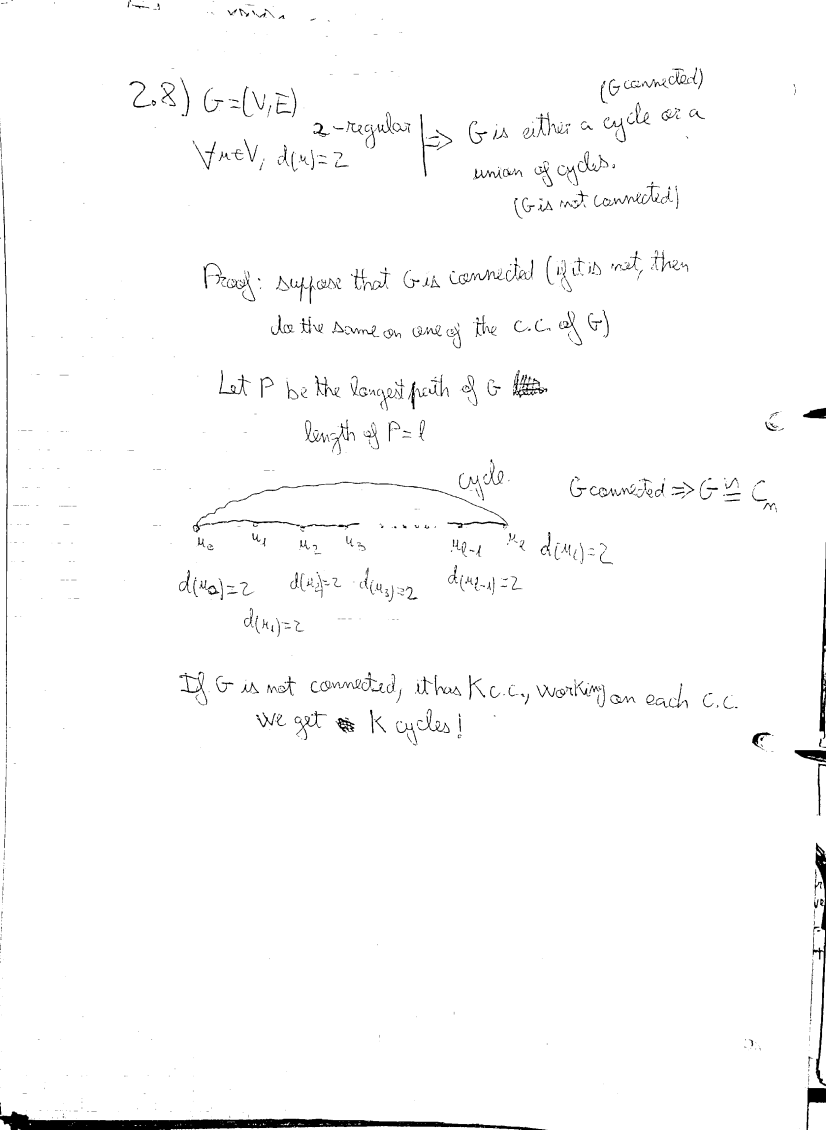 2.8) G=(V,E)
(G connected)
2-regular
∀u∈V, d(u)=2
⇒ G is either a cycle or a
union of cycles.
(G is not connected)
Proof: suppose that G is connected (if it is not, then
do the same on one of the c.c. of G)
Let P be the longest path of G
length of P=l
cycle.
G connected ⇒ G ≅ Cn
u0 u1 u2 u3 ....... ul-1 ul d(ul)=2
d(u0)=2 d(u2)=2 d(u3)=2 d(ul-1)=2
d(u1)=2
If G is not connected, it has K c.c., working on each c.c.
we get K cycles!